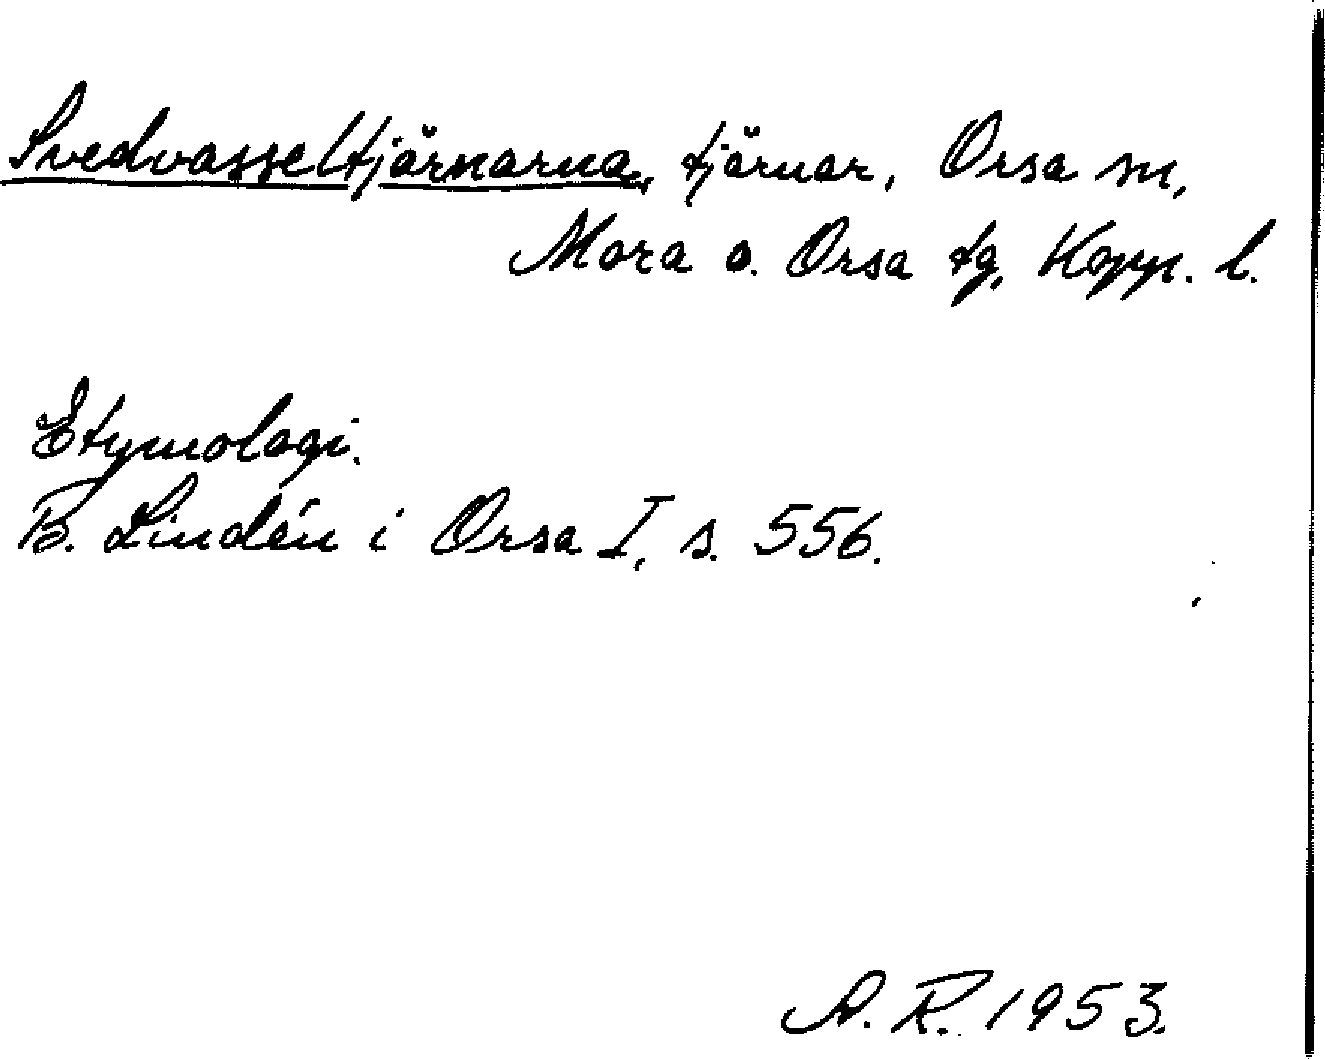 Svedvasseltjärnarna, tjärnar, Orsa sn,
Mora o. Orsa tg, Kopp. l.
Etymologi.
B. Lindén i Orsa I, s. 556.
A. R. 1953.